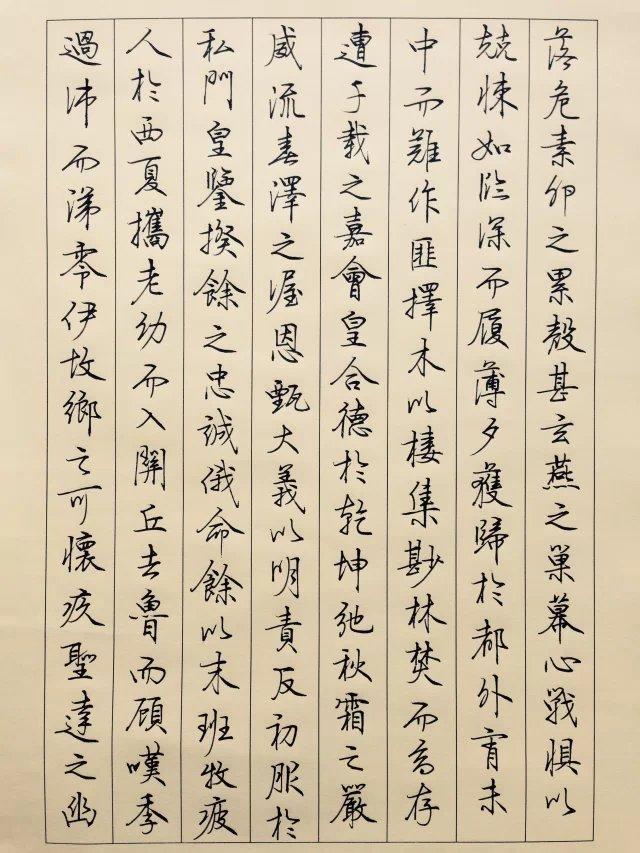 落危素卵之累殼甚玄燕之巢幕心戰懼以
兢悚如臨深而履薄夕獲歸於都外宵未
中而難作匪擇木以棲集尠林焚而鳥存
遭千載之嘉會皇合德於乾坤弛秋霜之嚴
威流春澤之渥恩甄大義以明責反初服於
私門皇鑒揆餘之忠誠俄命餘以末班牧疲
人於西夏攜老幼而入關丘去魯而顧嘆季
過沛而涕零伊故鄉之可懷疚聖達之幽